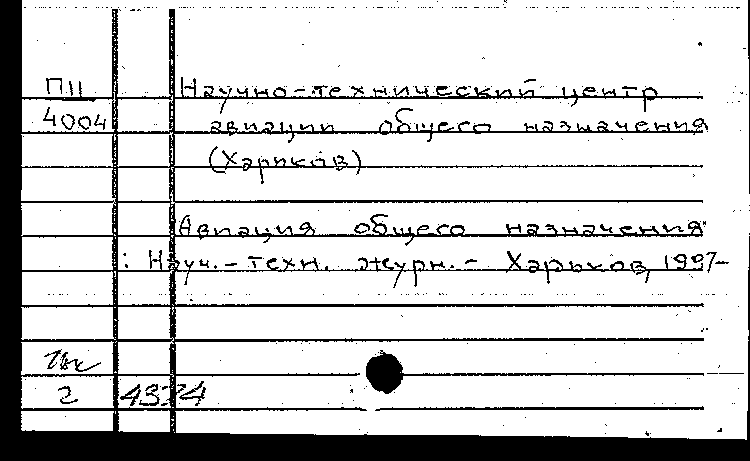 П11 Научно-технический центр
4004 авиации общего назначения
(Харьков)
Авиация общего назначения
: Науч.-техн. журн.- Харьков, 1997-
2 4324